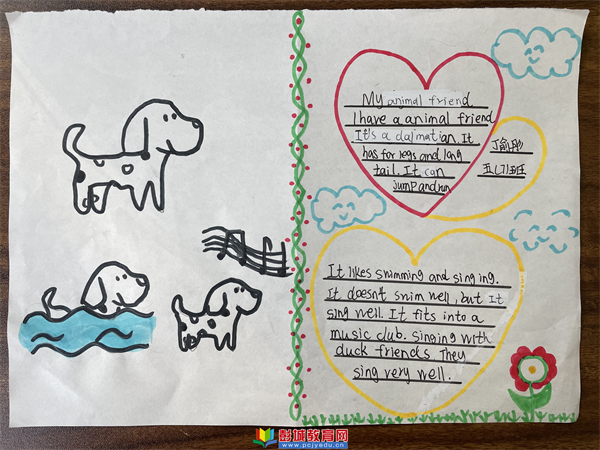 My animal friend
I have a animal friend
It's a dalmatian. It
has for legs and long
tail. It can
jump and run
五(7)班
It likes swimming and singing.
It doesn't swim well, but It
sing well. It fits into a
music club. singing with
duck friends. They
sing very well.
彭城教育网
www.pcjyedu.cn